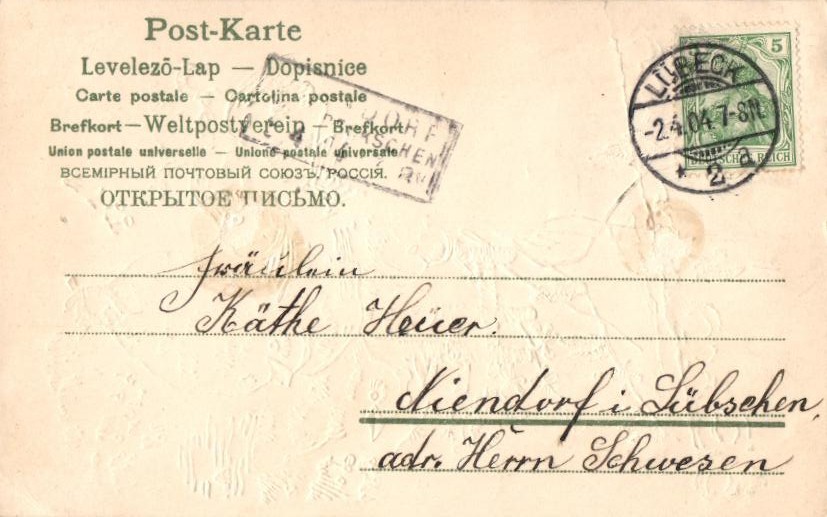 Post-Karte
Levelező-Lap — Dopisnice
Carte postale — Cartolina postale
Brefkort — Weltpostverein — Brefkort
Union postale universelle — Unione postale universale
ВСЕМІРНЫЙ ПОЧТОВЫЙ СОЮЗЪ, РОССІЯ.
ОТКРЫТОЕ ПИСЬМО.
5
DEUTSCHES REICH
LÜBECK
-2.4.04.7-8N.
* 2 a
Fräulein
Käthe Heuer.
Niendorf i Lübschen,
adr. Herrn Schwesen